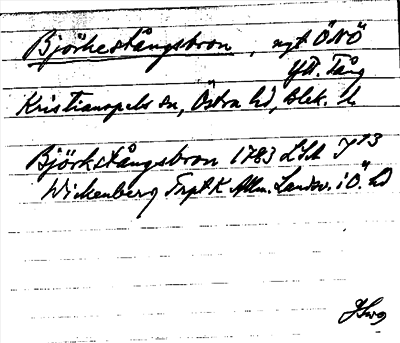 Björkestångsbron, nyt ÖNÖ
Ytt. Tång
Kristianopels sn, Östra hd, Blek. l.
Björkstångsbron 1783 LSA J 13
Wickenberg Trpt K Allm. Landsv. i Ö. hd